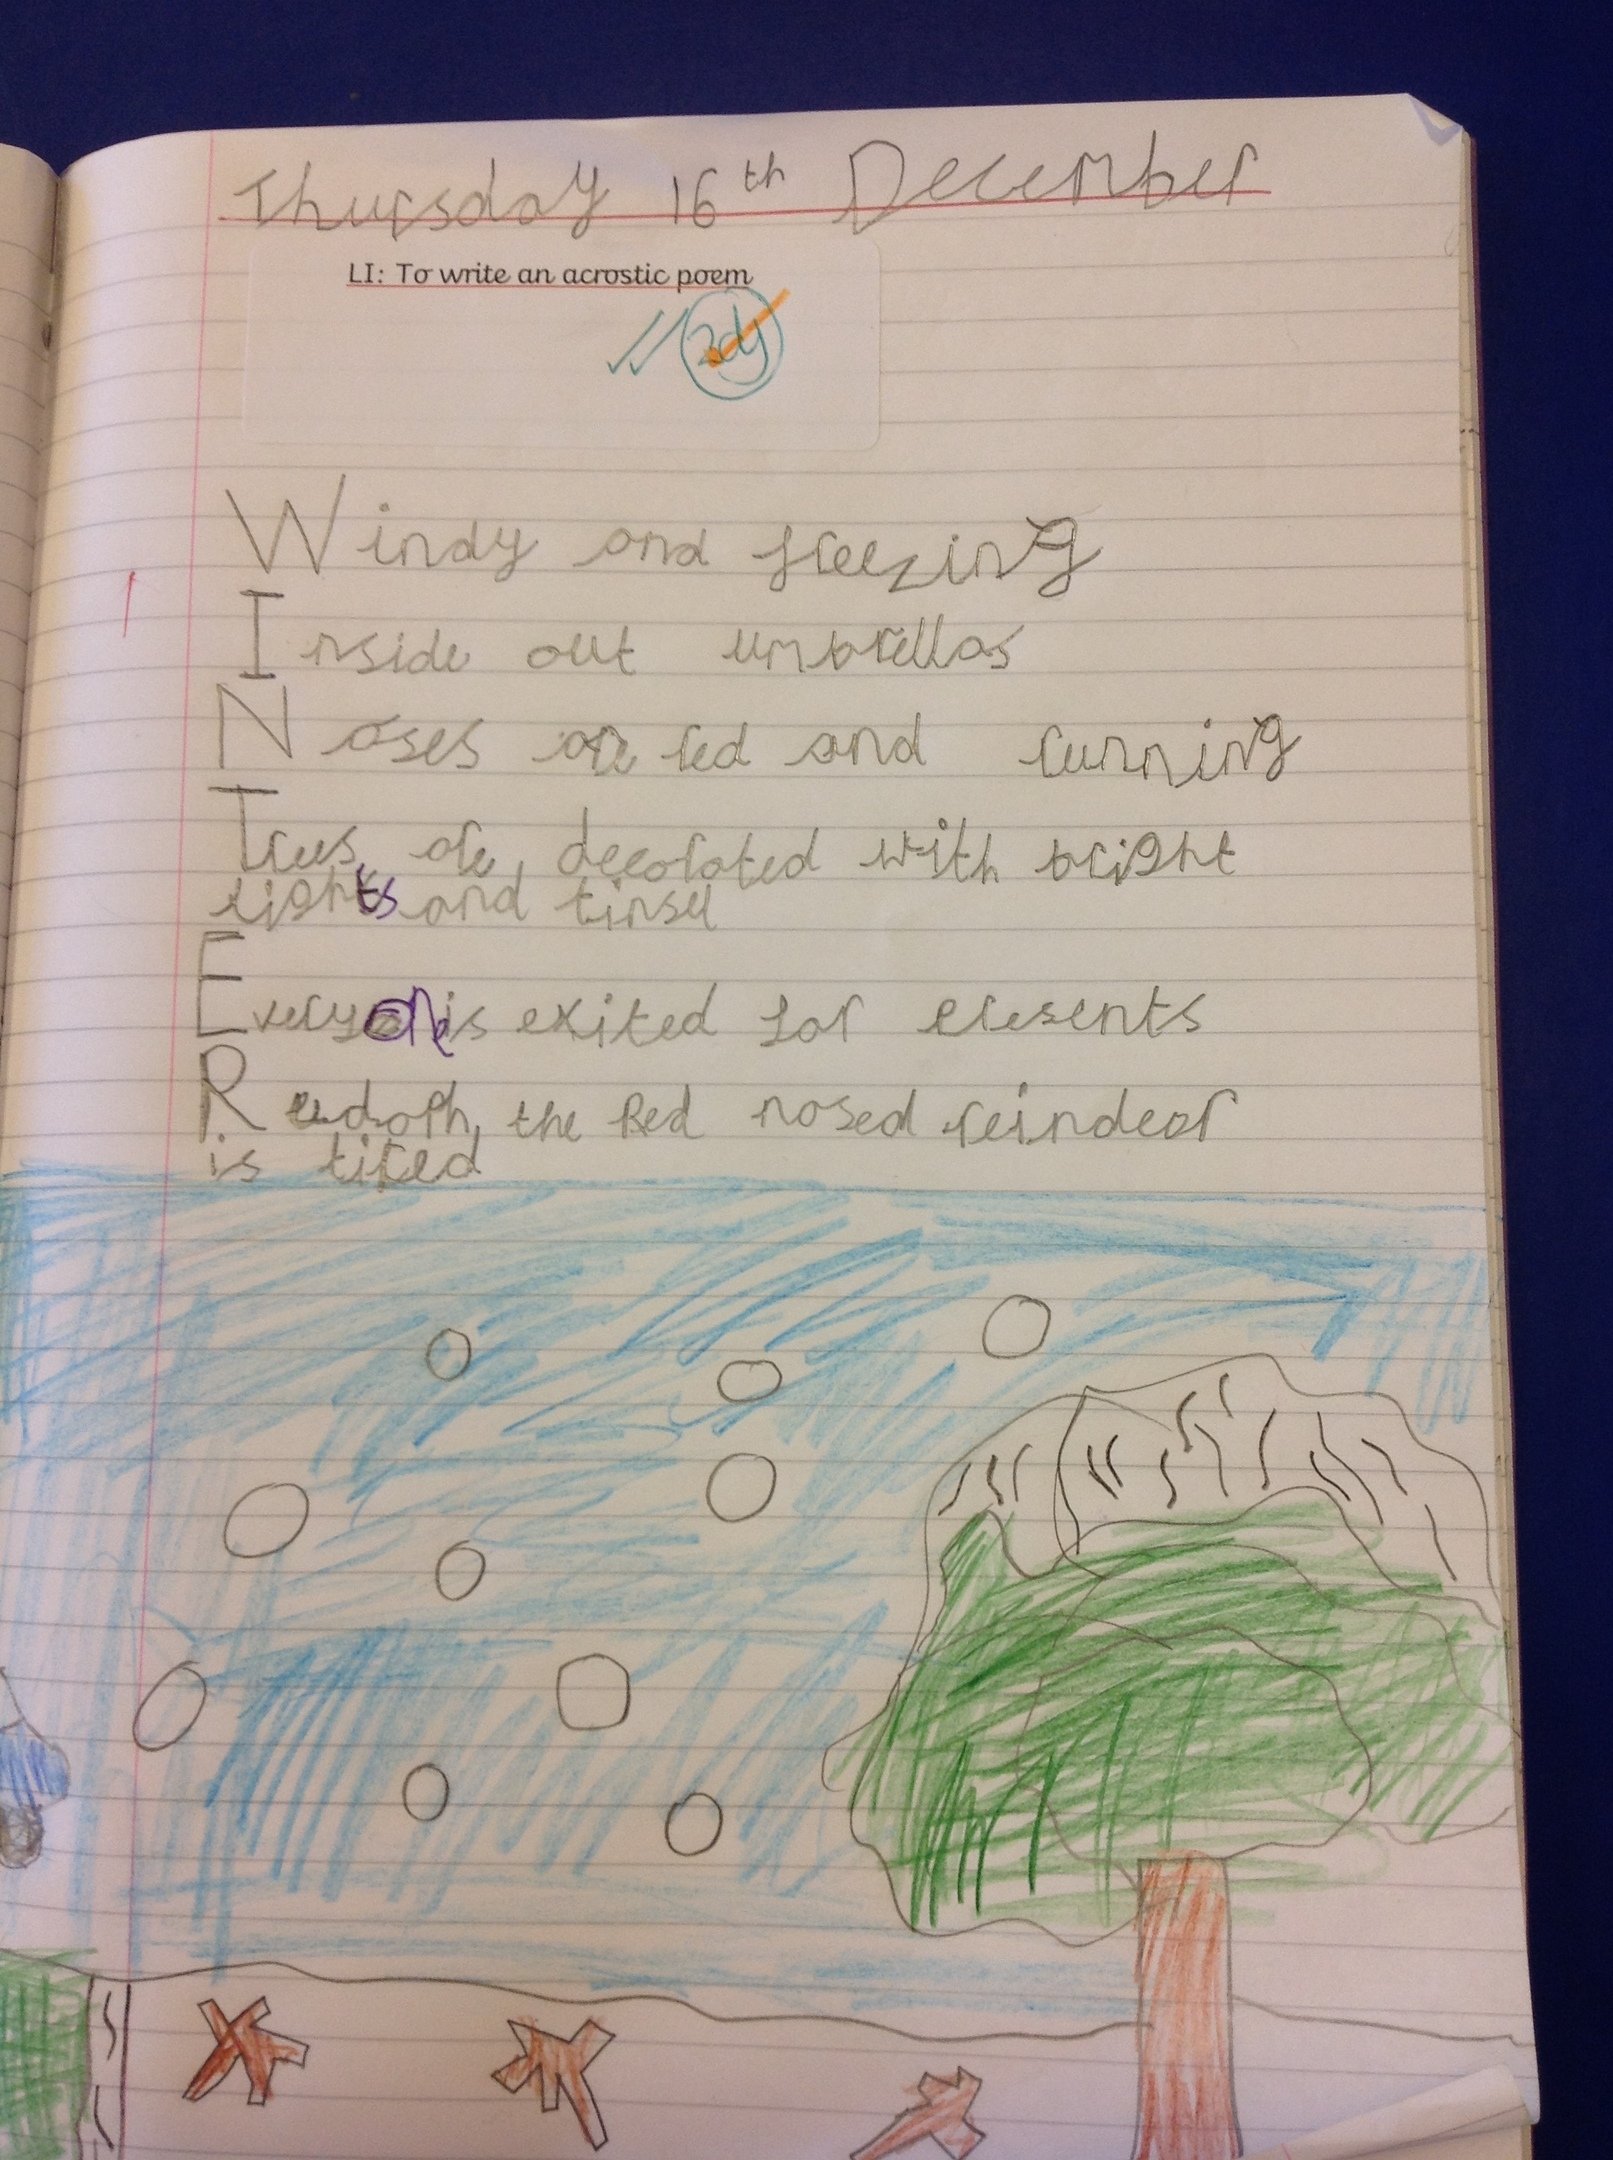 Thursday 16th December
LI: To write an acrostic poem
Windy and freezing
Inside out umbrellas
Noses are red and running
Trees are decorated with bright
lights and tinsel
Everyone is exited for presents
Rudolph, the Red nosed reindear
is tired